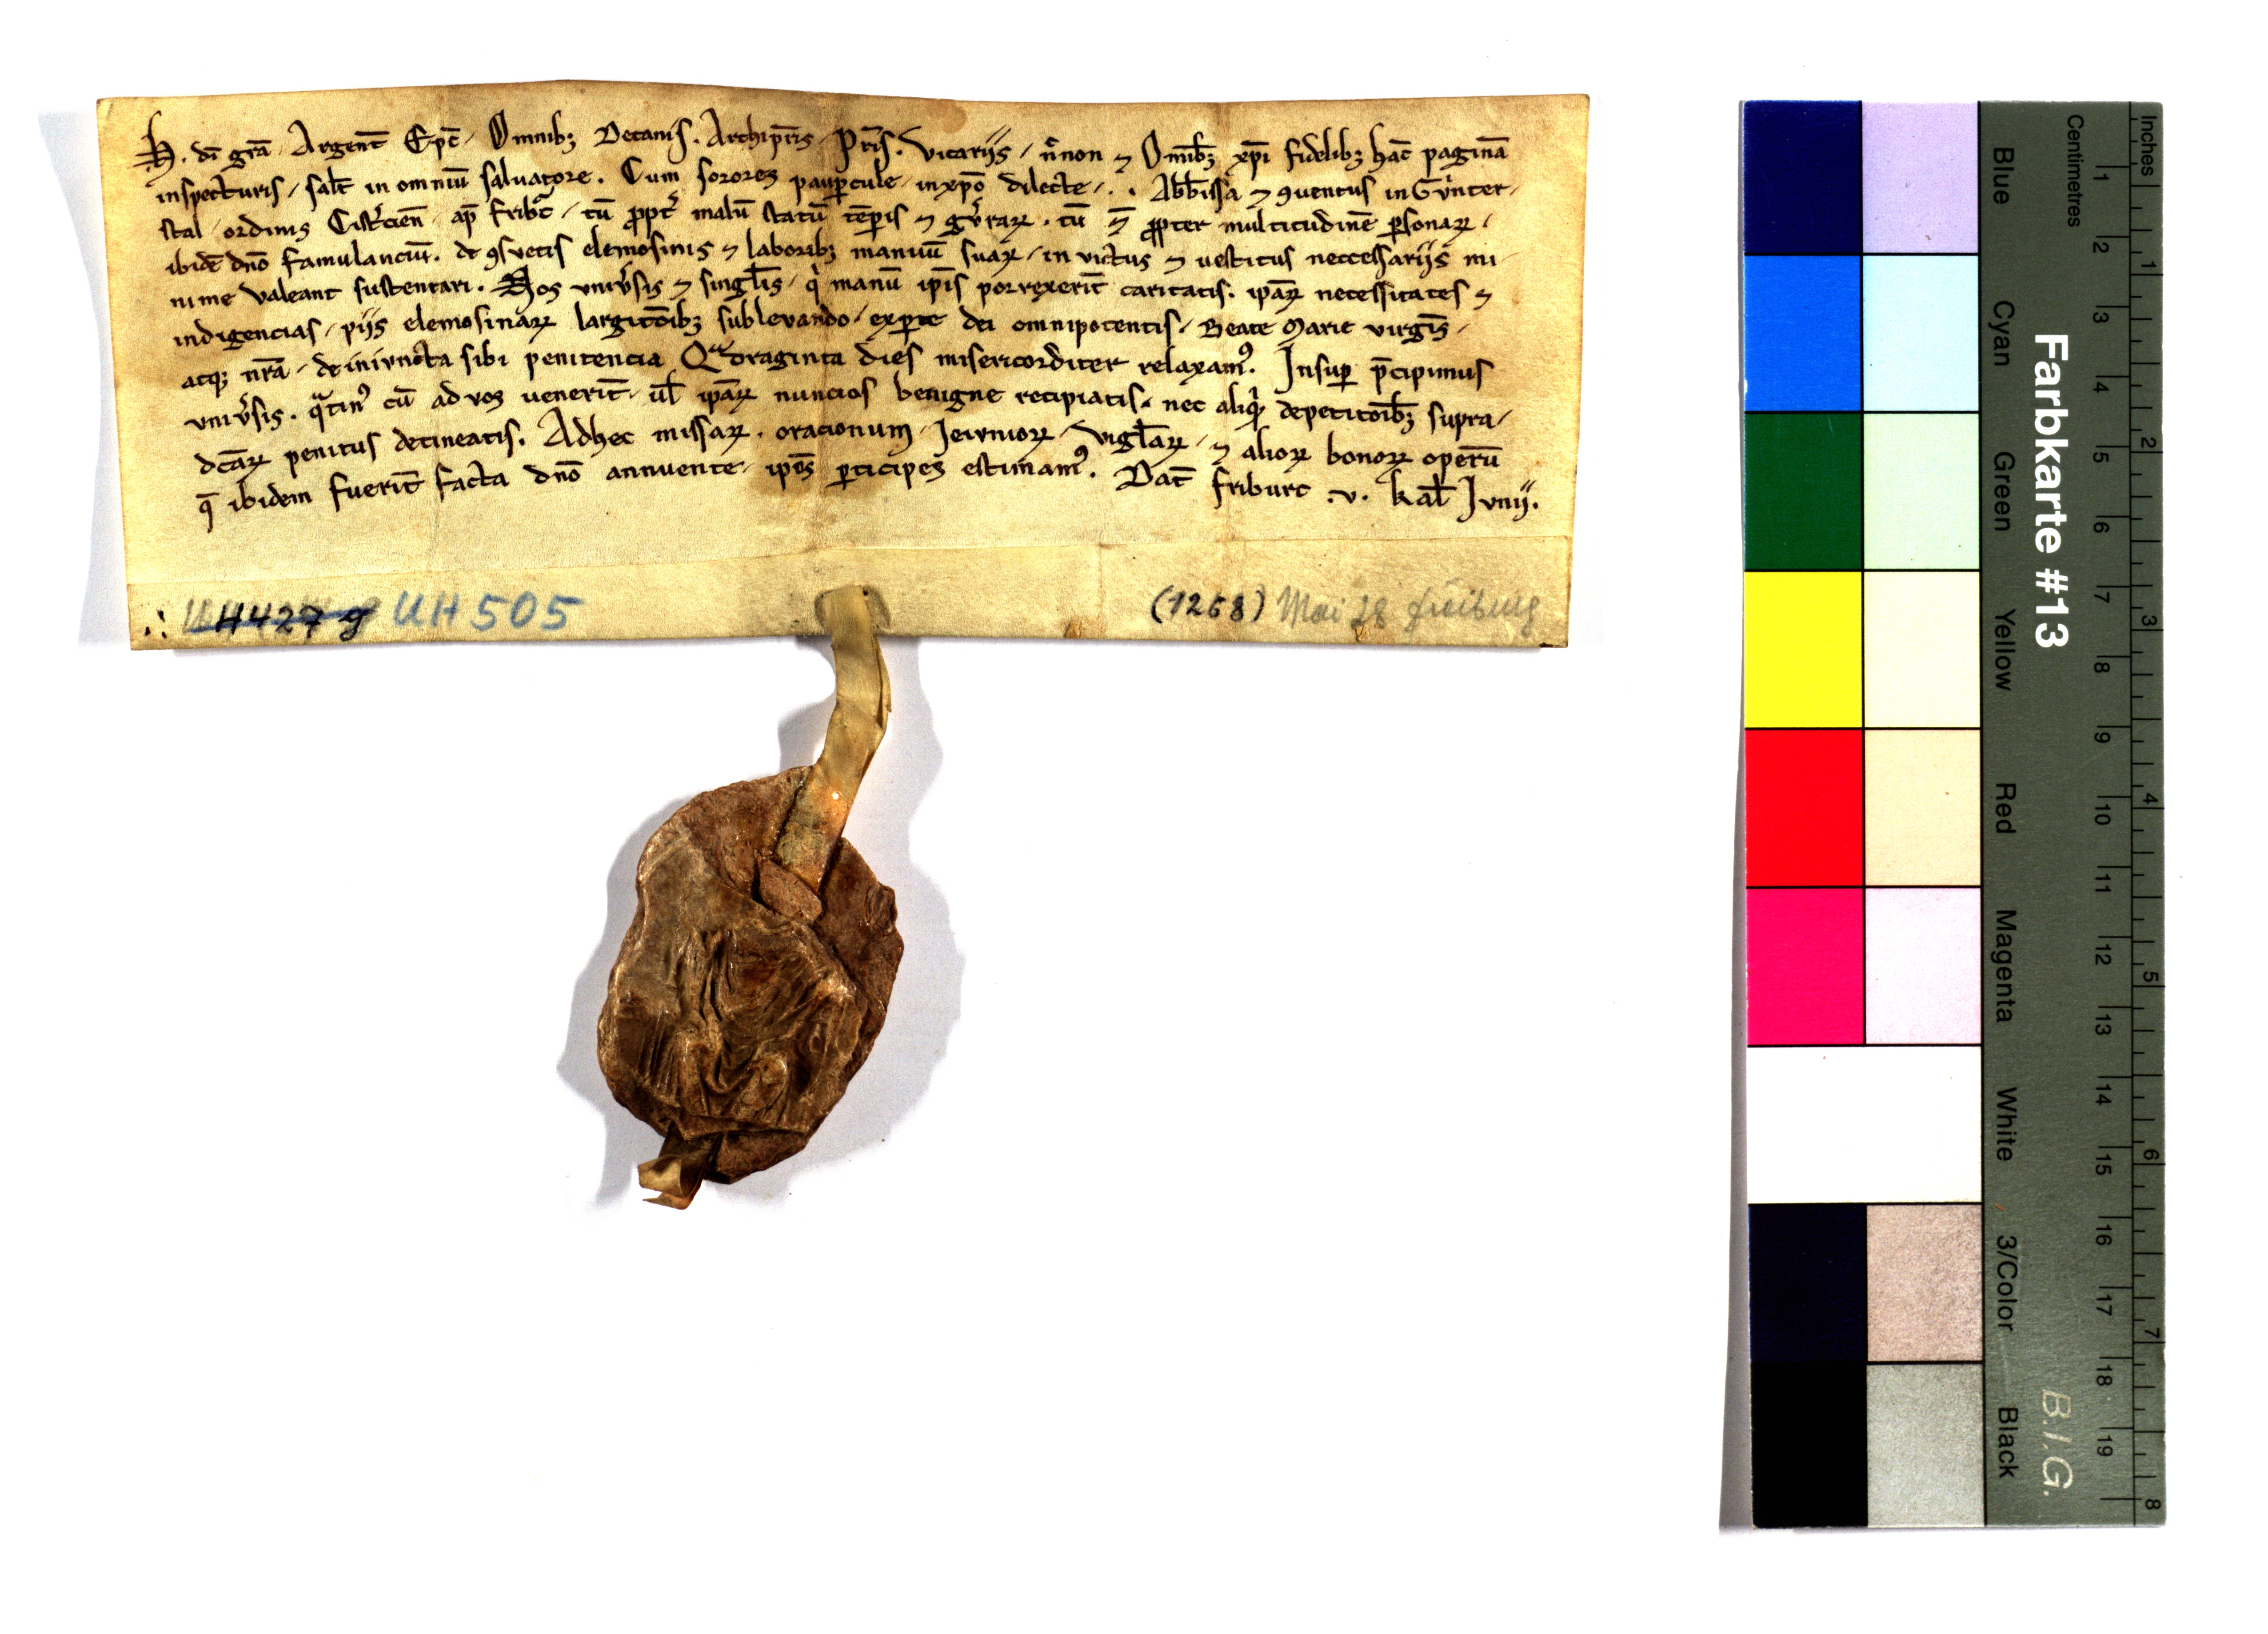 H. di grā Argent̄ Ep̄c. Omnibꝫ Decanis. Archipr̄is. Pr̄is. Vicariis. n̄non ⁊ Omnibꝫ xp̄i fidelibꝫ hāc paginā
inspecturis. sal̄t in omniū saluatore. Cum sorores paup̄cule in xp̄o dilecte. . Abb̄issa ⁊ ꝯuentus in Gv̊nter
stal ordinis Cist̄cien̄ ap̄ fribc̄. tū ꝓpt̄ malū statū tēꝑis ⁊ gv̄raꝝ. tū ⁊̄ ꝓpter multitudinē ꝑsonaꝝ.
ibidē dn̄o famulanciū. de ꝯsvetis elemosinis ⁊ laboribꝫ manuū suaꝝ. in victus ⁊ uestitus neccessariis mi
nime valeant sustentari. Hos vniv̄sis ⁊ singl̄is. qⁱ manū ip̄is porrexerīt caritatis. ip̄aꝝ necessitates ⁊
indigencias. piis elemosinaꝝ largitōibꝫ sublevando. ex ꝑte dei omnipotentis. Beate Marie virgīs.
atqꝫ nr̄a. de inivncta sibi penitencia Qᵃdraginta dies misericorditer relaxamꝰ. Insuꝑ p̄cipimus
vniv̄sis. qᵃtinꝰ cū ad vos uenerīt. ul̄ ip̄aꝝ nuncios benigne recipiatis. nec aliqᵃꝫ de petitōibꝫ supra
dc̄aꝝ penitus detineatis. Adhec missaꝝ. oracionum. Ieivnioꝝ. vigl̄aꝝ. ⁊ alioꝝ bonoꝝ operū
q̄ ibidem fuerīt facta dn̄o annuente. ip̄os ꝑticipes estimamꝰ. Dat̄ friburc .v. kal̄ Ivnii.
UH427 g UH 505
(1268) Mai 28 Freiburg
Farbkarte #13
B.I.G.
Centimetres
Inches
Blue Cyan Green Yellow Red Magenta White 3/Color Black
1 2 3 4 5 6 7 8 9 10 11 12 13 14 15 16 17 18 19
1 2 3 4 5 6 7 8